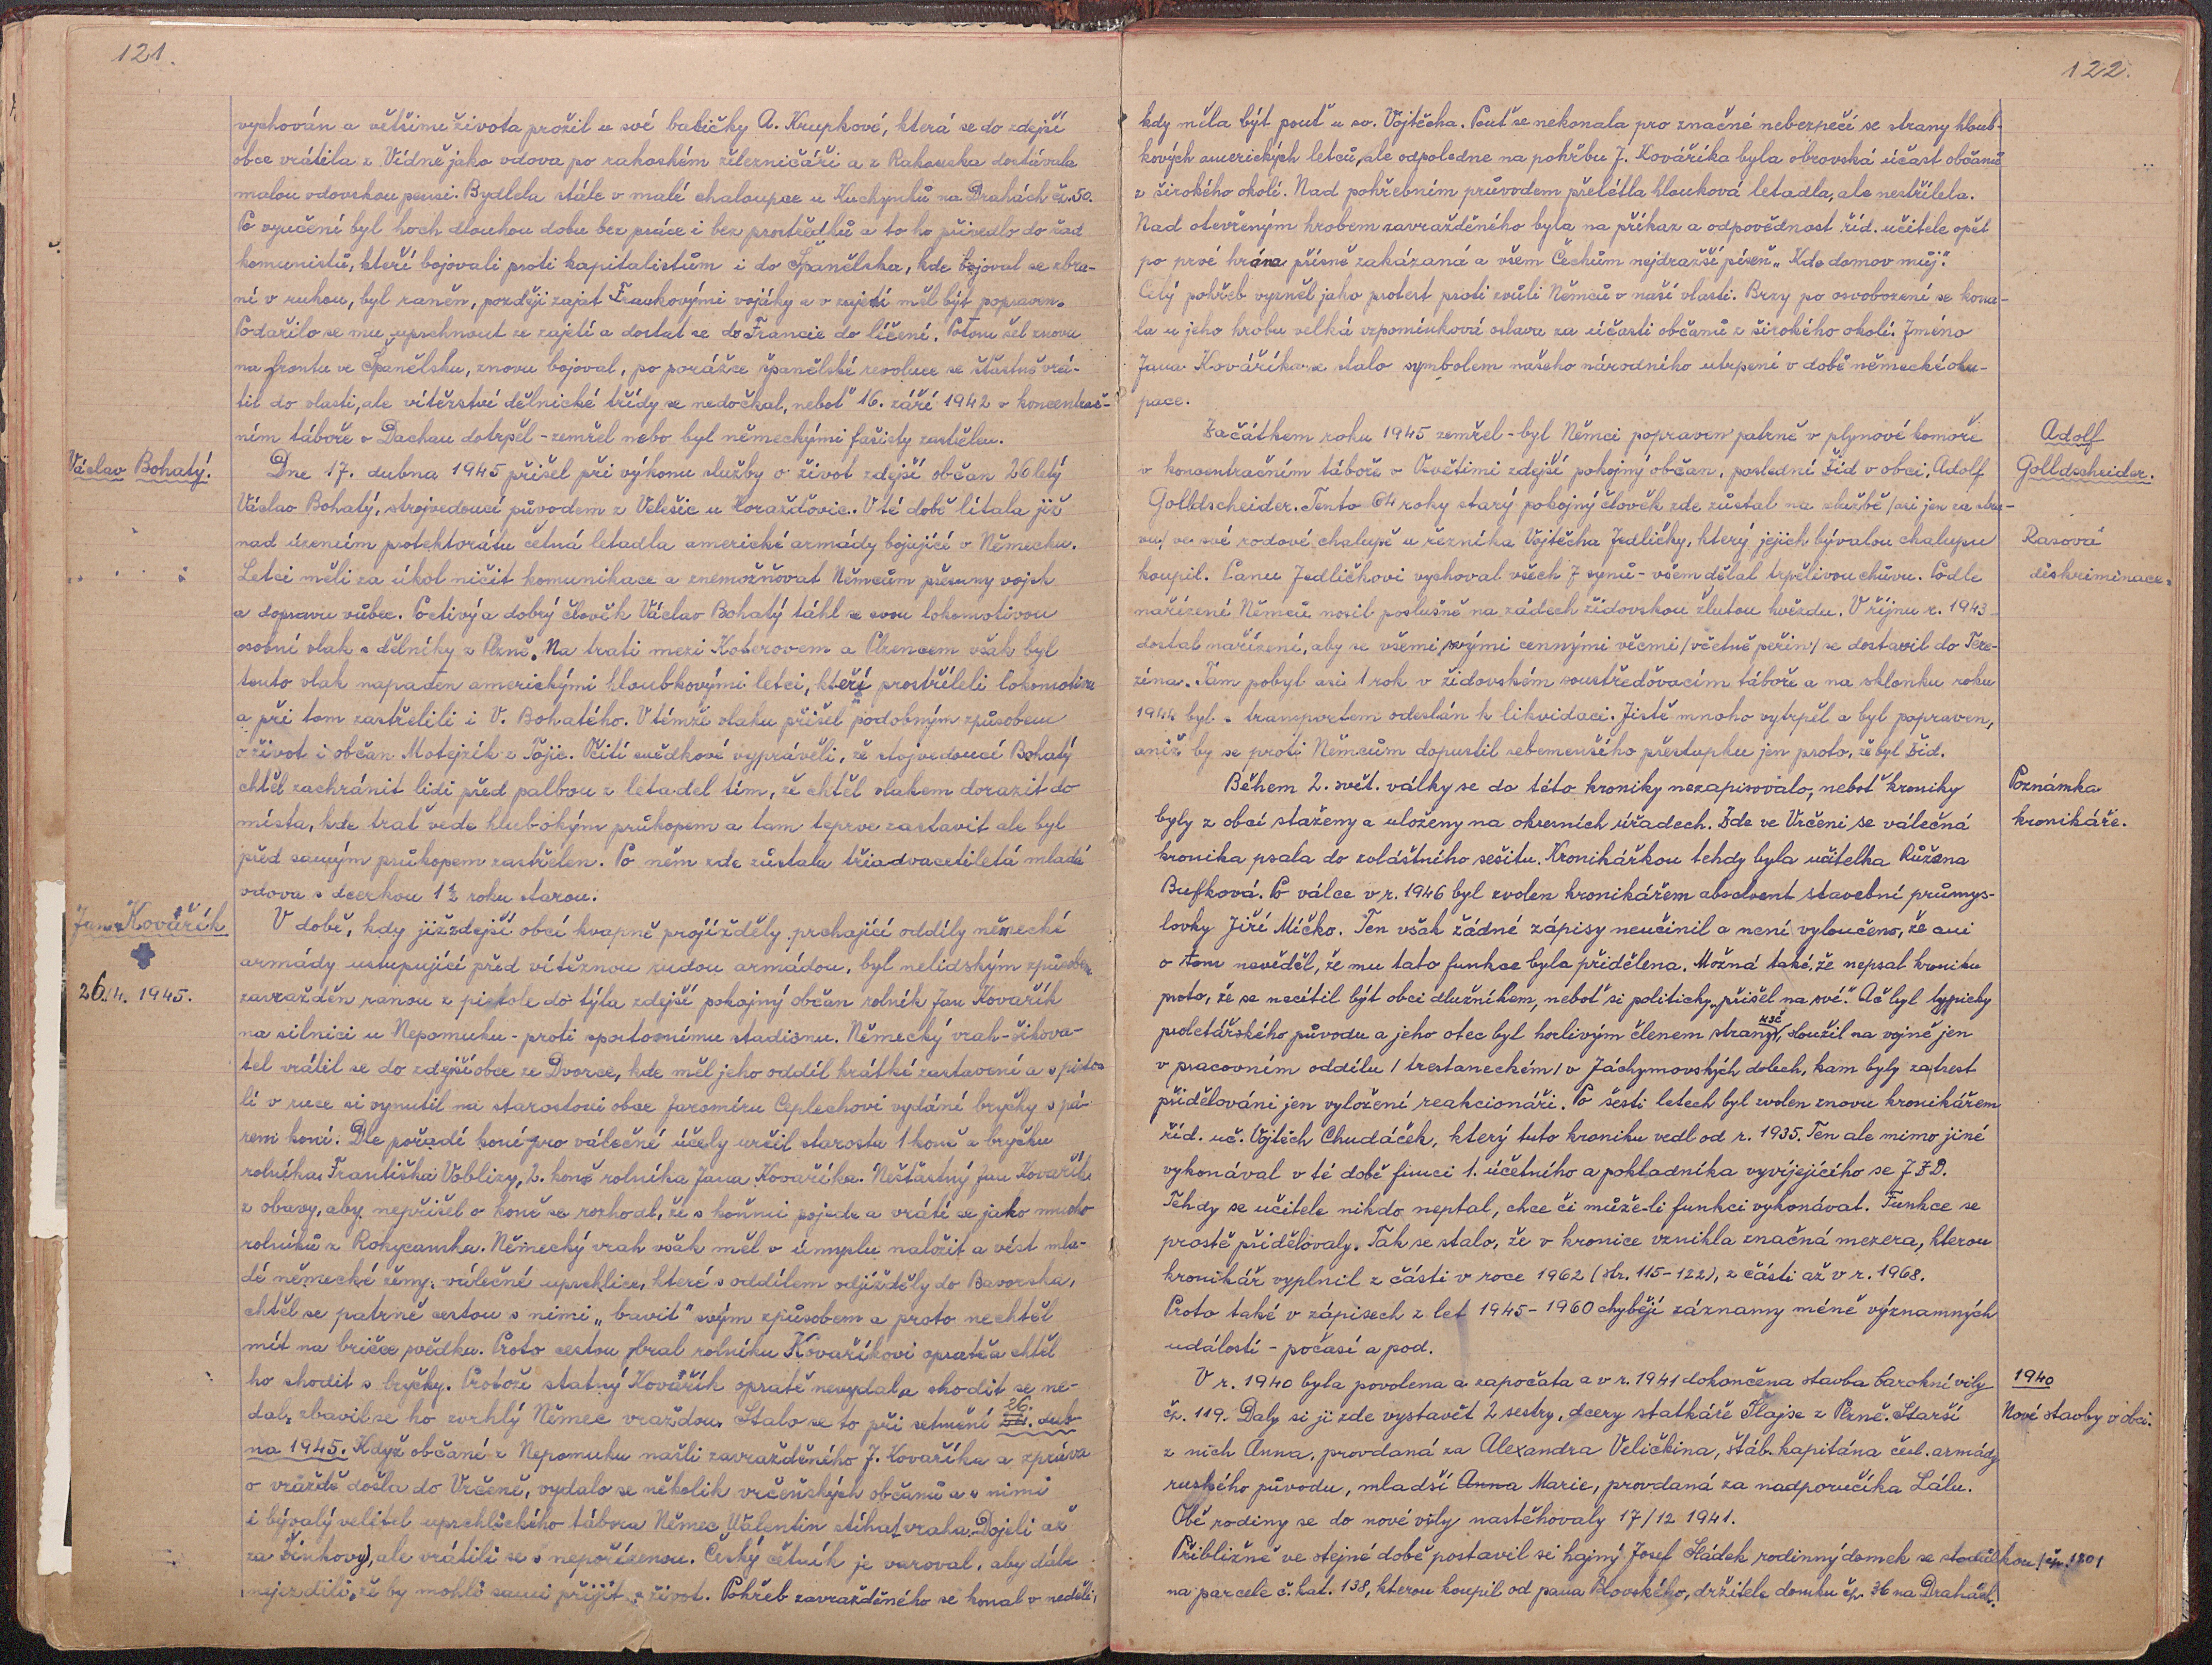 121.
vychován a většinu života prožil u své babičky A. Krupkové, která se do zdejší
obce vrátila z Vídně jako vdova po rakouském železničáři a z Rakouska dostávala
malou vdovskou pensi. Bydlela stále v malé chaloupce u Kuchynků na Drahách čp. 50.
Po vyučení byl hoch dlouhou dobu bez práce i bez prostředků a to ho přivedlo do řad
komunistů, kteří bojovali proti kapitalistům i do Španělska, kde bojoval se zbra-
ní v rukou, byl raněn, později zajat Frankovými vojáky a v zajetí měl být popraven.
Podařilo se mu uprchnout ze zajetí a dostat se do Francie do léčení. Potom šel znovu
na frontu ve Španělsku, znovu bojoval, po porážce španělské revoluce se šťastně vrá-
til do vlasti, ale vítězství dělnické třídy se nedočkal, neboť 16. září 1942 v koncentrač-
ním táboře v Dachau dotrpěl - zemřel nebo byl německými fašisty zastřelen.
Václav Bohatý.
Dne 17. dubna 1945 přišel při výkonu služby o život zdejší občan 26 letý
Václav Bohatý, strojvedoucí původem z Velešic u Horažďovic. V té době lítala již
nad územím protektorátu četná letadla americké armády bojující v Německu.
Letci měli za úkol ničit komunikace a znemožňovat Němcům přesuny vojsk
a dopravu vůbec. Poctivý a dobrý člověk Václav Bohatý táhl se svou lokomotivou
osobní vlak s dělníky z Plzně. Na trati mezi Koterovem a Plzencem však byl
tento vlak napaden americkými hloubkovými letci, kteří prostříleli lokomotivu
a při tom zastřelili i V. Bohatého. V témže vlaku přišel podobným způsobem
o život i občan Motejzík z Tojic. Očití svědkové vyprávěli, že stojvedoucí Bohatý
chtěl zachránit lidi před palbou z letadel tím, že chtěl vlakem dorazit do
místa, kde trať vede hlubokým průkopem a tam teprve zastavit ale byl
před samým průkopem zastřelen. Po něm zde zůstala třiadvacetiletá mladá
vdova s dcerkou 1½ roku starou.
Jan Kovářík
26. 4. 1945.
V době, kdy již zdejší obcí kvapně projížděly prchající oddíly německé
armády ustupující před vítěznou rudou armádou, byl nelidským způsobem
zavražděn ranou z pistole do týla zdejší pokojný občan rolník Jan Kovařík
na silnici u Nepomuku - proti sportovnímu stadionu. Německý vrah - šikova-
tel vrátil se do zdejší obce ze Dvorce, kde měl jeho oddíl krátké zastavení a s pisto-
lí v ruce si vynutil na starostovi obce Jaromíru Ceplechovi vydání bryčky s pá-
rem koní. Dle pořadí koní pro válečné účely určil starosta 1 koně a bryčku
rolníka Františka Voblizy, 2. koně rolníka Jana Kovaříka. Nešťastný Jan Kovařík
z obavy, aby nepřišel o koně se rozhodl, že s koňmi pojede a vrátí se jako mnoho
rolníků z Rokycanska. Německý vrah však měl v úmyslu naložit a vést mla-
dé německé ženy, válečné uprchlice, které s oddílem odjížděly do Bavorska,
chtěl se patrně cestou s nimi „bavit" svým způsobem a proto nechtěl
mít na bričce svědka. Proto cestou bral rolníku Kovaříkovi opratě a chtěl
ho shodit s bryčky. Protože statný Kovářík opratě nevydal a shodit se ne-
dal, zbavil se ho zvrhlý Němec vraždou. Stalo se to při setmění 26. dub-
na 1945. Když občané z Nepomuku našli zavražděného J. Kovaříka a zpráva
o vraždě došla do Vrčeně, vydalo se několik vrčeňských občanů a s nimi
i bývalý velitel uprchlického tábora Němec Valentin stíhat vraha. Dojeli až
za Žinkovy, ale vrátili se s nepořízenou. Český četník je varoval, aby dále
nejezdili, že by mohli sami přijít o život. Pohřeb zavražděného se konal v neděli,
122.
kdy měla být pouť u sv. Vojtěcha. Pouť se nekonala pro značné nebezpečí se strany hloub-
kových amerických letců, ale odpoledne na pohřbu J. Kováříka byla obrovská účast občanů
z širokého okolí. Nad pohřebním průvodem přelétla hlouková letadla, ale nestřílela.
Nad otevřeným hrobem zavražděného byla na příkaz a odpovědnost říd. učitele opět
po prvé hrána přísně zakázaná a všem Čechům nejdražší píseň „Kde domov můj."
Celý pohřeb vyzněl jako protest proti zvůli Němců v naší vlasti. Brzy po osvobození se kona-
la u jeho hrobu velká vzpomínková oslava za účasti občanů z širokého okolí. Jméno
Jana Kováříka se stalo symbolem našeho národního utrpení v době německé oku-
pace.
Adolf
Golldscheider.
Začátkem roku 1945 zemřel - byl Němci popraven patrně v plynové komoře
v koncentračním táboře v Osvětimi zdejší pokojný občan, poslední Žid v obci, Adolf
Goldscheider. Tento 64 roky starý pokojný člověk zde zůstal na službě /asi jen za stra-
vu/ ve své rodové chalupě u řezníka Vojtěcha Jedličky, který jejich bývalou chalupu
Rasová
diskriminace.
koupil. Panu Jedličkovi vychoval všech 7 synů - všem dělal trpělivou chůvu. Podle
nařízení Němců nosil poslušně na zádech židovskou žlutou hvězdu. V říjnu r. 1943
dostal nařízení, aby se všemi svými cennými věcmi /včetně peřin/ se dostavil do Tere-
zína. Tam pobyl asi 1 rok v židovském soustřeďovacím táboře a na sklonku roku
1944 byl s transportem odeslán k likvidaci. Jistě mnoho vytrpěl a byl popraven,
aniž by se proti Němcům dopustil sebemenšího přestupku jen proto, že byl Žid.
Poznámka
kronikáře.
Během 2. svět. války se do této kroniky nezapisovalo, neboť kroniky
byly z obcí staženy a uloženy na okresních úřadech. Zde ve Vrčeni se válečná
kronika psala do zvláštního sešitu. Kronikářkou tehdy byla učitelka Růžena
Bufková. Po válce v r. 1946 byl zvolen kronikářem absolvent stavební průmys-
lovky Jiří Míčko. Ten však žádné zápisy neučinil a není vyloučeno, že ani
o tom nevěděl, že mu tato funkce byla přidělena. Možná také, že nepsal kroniku
proto, že se necítil být obci dlužníkem, neboť si politicky „přišel na své." Ač byl typicky
proletářského původu a jeho otec byl horlivým členem strany KSČ, sloužil na vojně jen
v pracovním oddílu / trestaneckém / v Jáchymovských dolech, kam byly za trest
přidělováni jen vyložení reakcionáři. Po šesti letech byl zvolen znovu kronikářem
říd. uč. Vojtěch Chudáček, který tuto kroniku vedl od r. 1935. Ten ale mimo jiné
vykonával v té době funci 1. účetního a pokladníka vyvíjejícího se J Z D.
Tehdy se učitele nikdo neptal, chce či může-li funkci vykonávat. Funkce se
prostě přidělovaly. Tak se stalo, že v kronice vznikla značná mezera, kterou
kronikář vyplnil z části v roce 1962 (str. 115-122), z části až v r. 1968.
Proto také v zápisech z let 1945-1960 chybějí záznamy méně významných
událostí - počasí a pod.
1940
Nové stavby v obci.
V r. 1940 byla povolena a započata a v r. 1941 dokončena stavba barokní vily
čp. 119. Daly si ji zde vystavět 2 sestry, dcery statkáře Flajse z Plzně. Starší
z nich Anna, provdaná za Alexandra Veličkina, štáb. kapitána česl. armády
ruského původu, mladší Anna Marie, provdaná za nadporučíka Lálu.
Obě rodiny se do nové vily nastěhovaly 17/12 1941.
Přibližně ve stejné době postavil si hajný Josef Sládek rodinný domek se stodůlkou /čp. 120/
na parcele č. kat. 138, kterou koupil od pana držitele domku čp. 36 na Drahách.